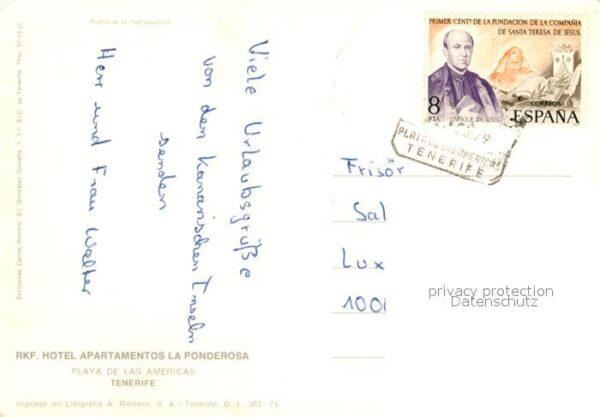 Prohibida la Reproducción
Viele Urlaubsgrüße
von den Kanarischen Inseln
senden
Herr und Frau Walter
Exclusivas Carlos Romero. C/ González Chinana, 1. S/C. de Tenerife. Tfno.
PRIMER CENTº DE LA FUNDACION DE LA COMPAÑIA
DE SANTA TERESA DE JESUS.
8
PTA
ENRIQUE DE OSSO
CORREOS
ESPAÑA
PLAYA DE LAS AMERICAS
TENERIFE
Frisör
Sal
Lux
100
privacy protection
Datenschutz
RKF. HOTEL APARTAMENTOS LA PONDEROSA
PLAYA DE LAS AMERICAS
TENERIFE
Impreso en Litografía A. Romero, S. A. - Tenerife. D. L. 563 - 74